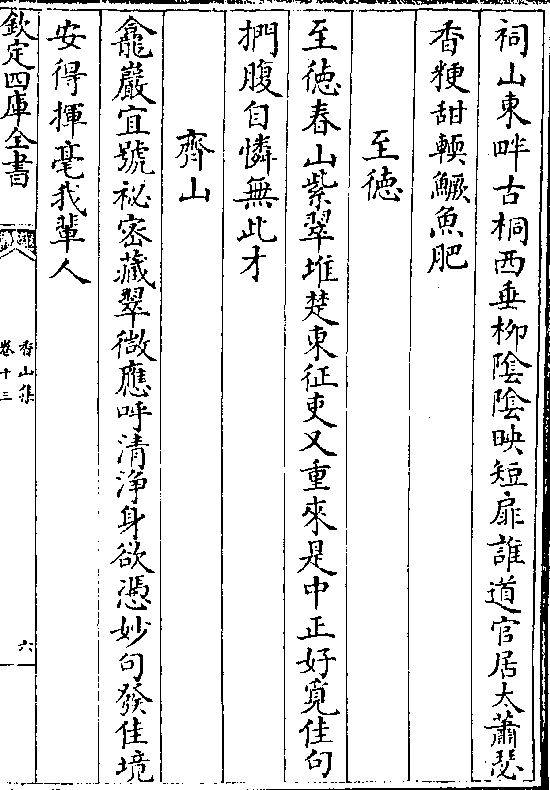 祠山東畔古桐西垂柳陰陰映短扉誰道官居太蕭瑟
香粳甜輭鱖魚肥
至徳
至徳春山紫翠堆楚東征吏又重來是中正好覓佳句
捫腹自憐無此才
齊山
龕巖宜號祕密藏翠微應呼清淨身欲憑妙句發佳境
安得揮毫我輩人
欽定四庫全書
香山集
卷十三
六